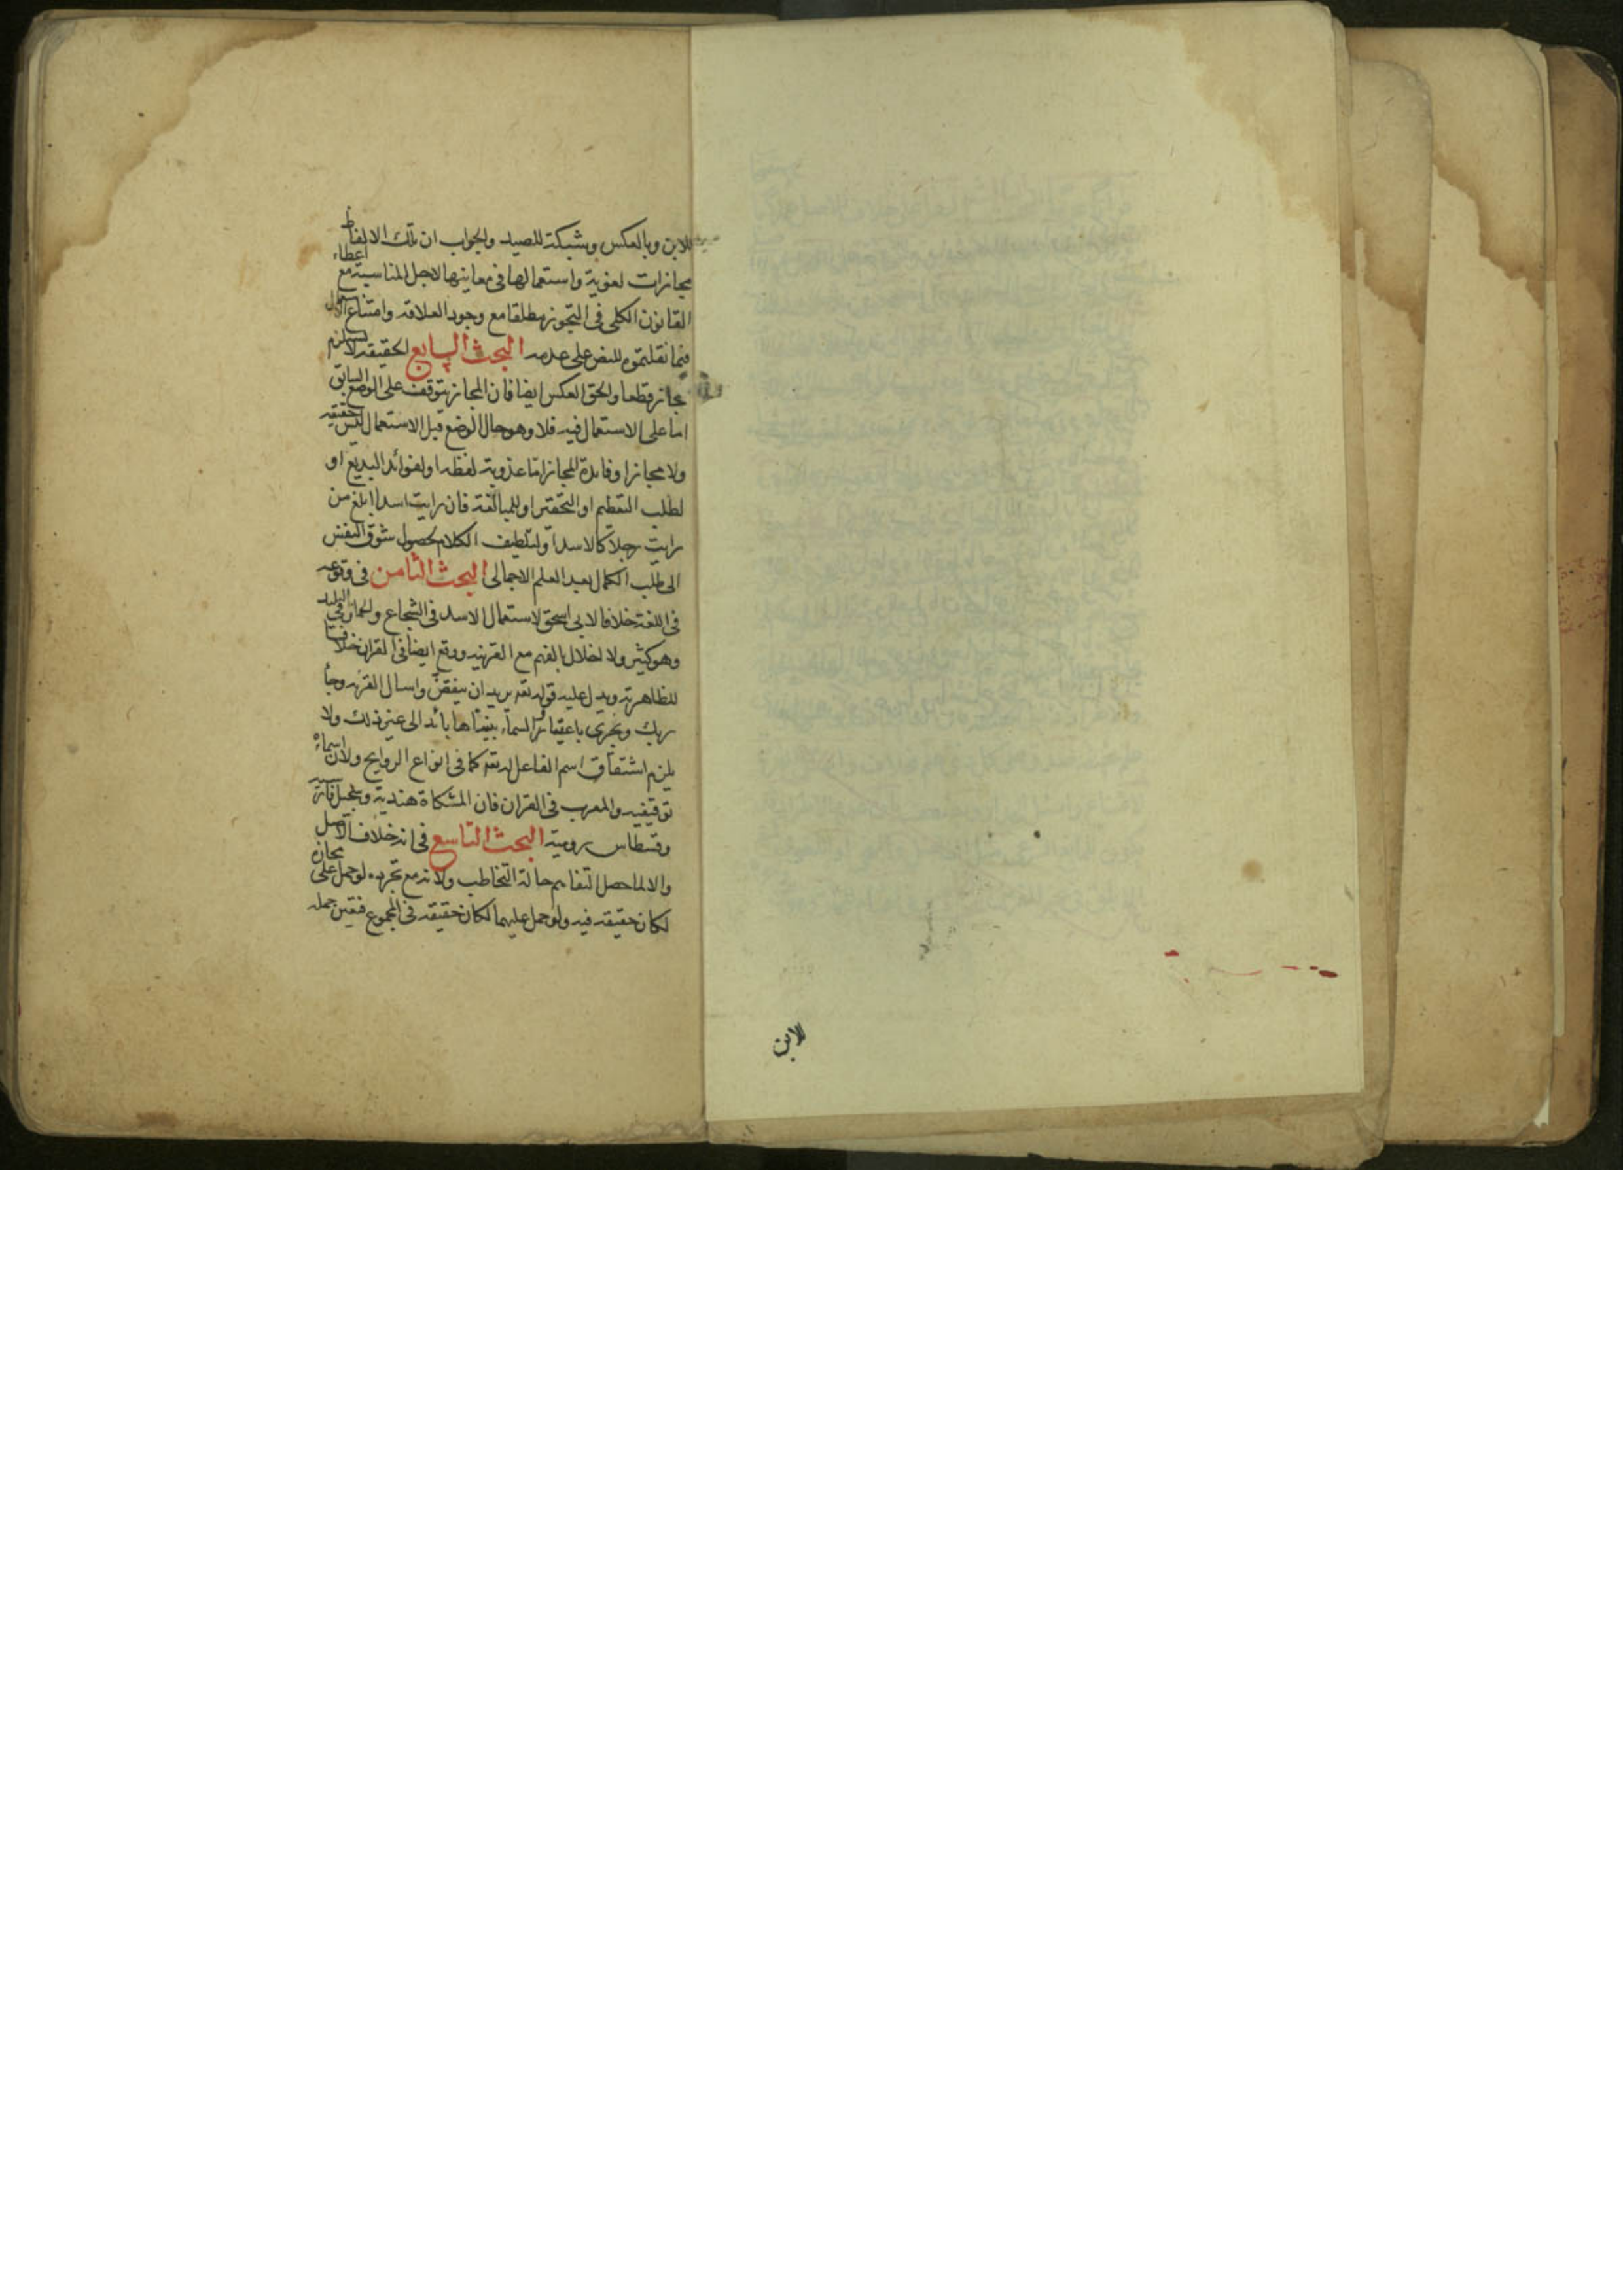 للابن وبالعكس وشبكة للصيد والجواب ان تلك الالفاظ
مجازات لغوية واستعمالها فى معاينها لاجل المناسبة مع اعطاء
القانون الكلى فى التجوز مطلقا مع وجود العلاقه وامتناع الاستعمال
فيما نقلتموه للنص على عدمه البحث السابع الحقيقه لا تستلزم
مجاز قطعا والحق العكس ايضا فان المجاز يتوقف على الوضع السابق
اما على الاستعمال فيه فلا وهو حال الوضع قبل الاستعمال ليس حقيقه
ولا مجازا وفايدة المجاز اما عذوبة لفظه او لفوائد البديع او
لطلب التعظيم او التحقير او للمبالغة فان رايت اسدا ابلغ من
رايت رجلا كالاسد او لتلطيف الكلام لحصول شوق النفس
الى طلب الكمال بعد العلم الاجمالى البحث الثامن فى وقوعه
فى اللغة خلافا لابى اسحق لاستعمال الاسد فى الشجاع والحمار فى البليد
وهو كثير ولا اخلال بالفهم مع القرينه ووقع ايضا فى القران خلافا
للظاهرية ويدل عليه قوله تعه يريد ان ينقض واسال القريه وجاء
ربك وتجرى باعيننا والسماء بنيناها بائد الى غير ذلك ولا
يلزم اشتقاق اسم الفاعل له تعه كما فى انواع الروايح ولان اسماءه
توقيفيه والمعرب فى القران فان المشكاة هندية وسجيل فارسيه
وقسطاس رومية البحث التاسع فى انه خلاف الاصل
والا لما حصل التفاهم حالة التخاطب ولانه مع تجرده لو حمل على مجازه
لكان حقيقه فيه ولو حمل عليهما لكان حقيقه فى المجموع فتعين حمله
لابن